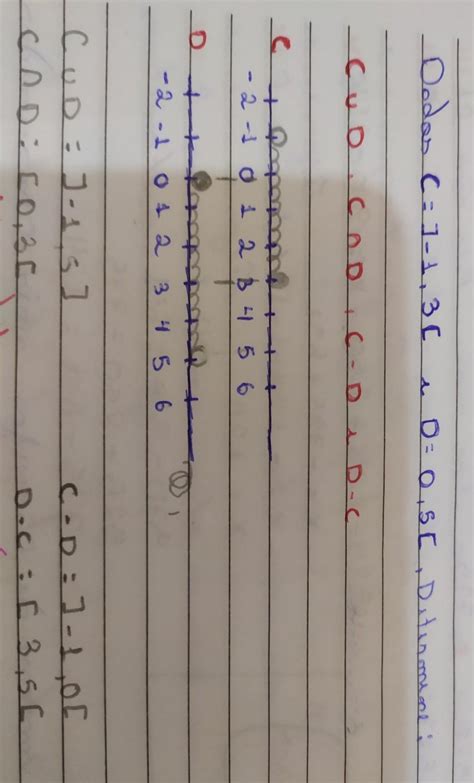 Dados C = ]-1,3[ e D = 0,5[, Determine:
C ∪ D, C ∩ D, C - D e D - C
C
-2 -1 0 1 2 3 4 5 6
D
-2 -1 0 1 2 3 4 5 6
C ∪ D = ]-1,5] C - D = ]-1,0[
C ∩ D = [0,3[ D - C = [3,5[